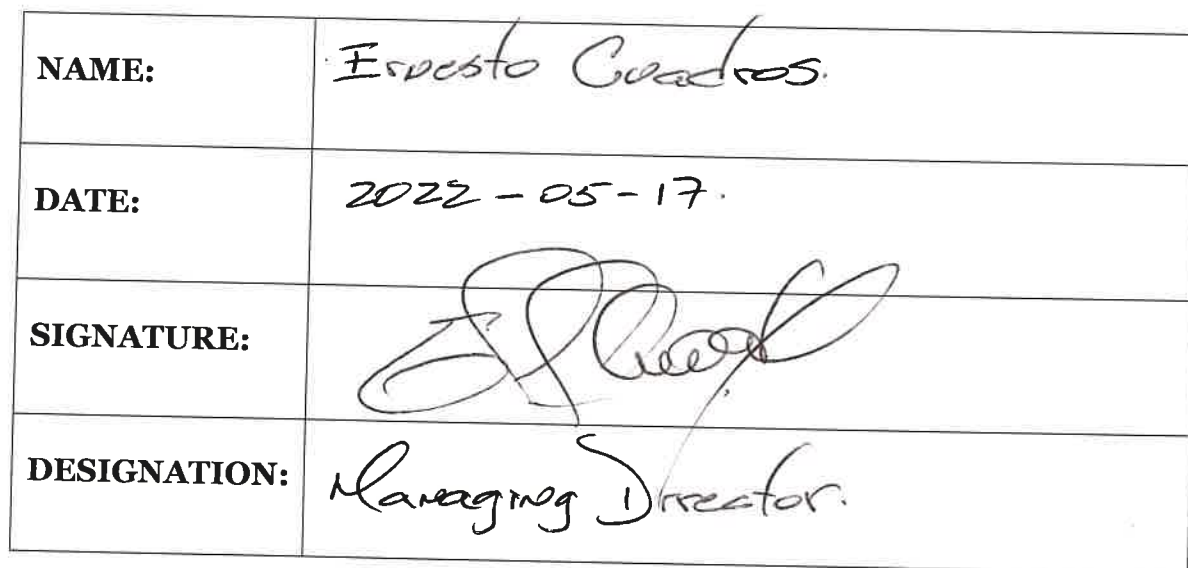 NAME: Ernesto Cuadros.
DATE: 2022-05-17.
SIGNATURE:
DESIGNATION: Managing Director.